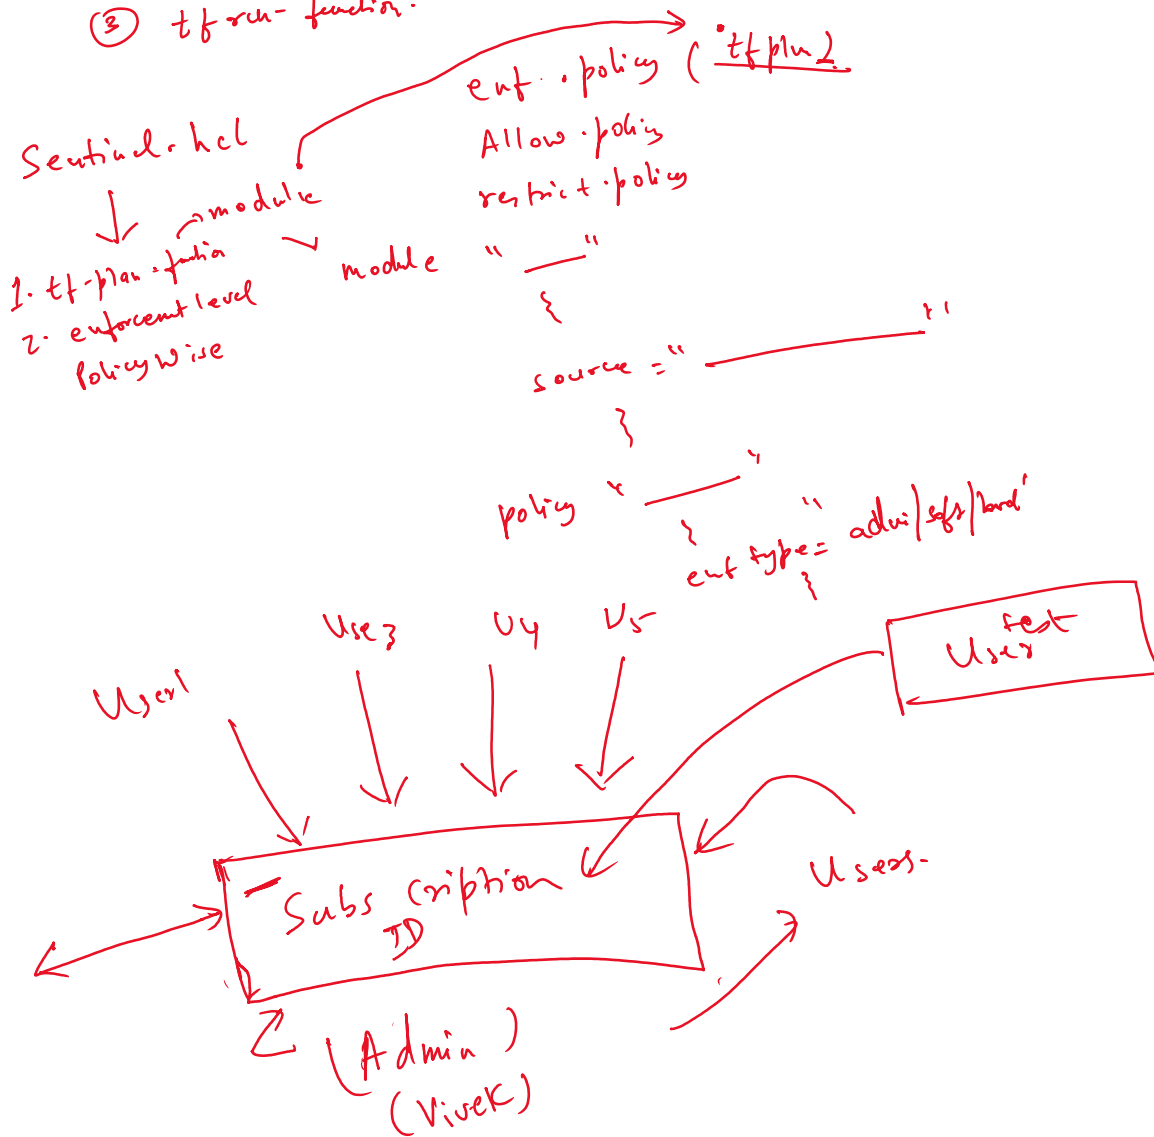 ③ tfrun-function.
enf.policy (tfplan)
Allow.policy
restrict.policy
Sentinel.hcl
module
1. tf-plan-function
2. enforcemt level
Policy wise
module " "
{
source = " "
}
policy " "
{
enf type = "advi/soft/hard"
}
User1
Use3
U4
U5
test
User
Subscription
ID
Users.
(Admin)
(Vivek)